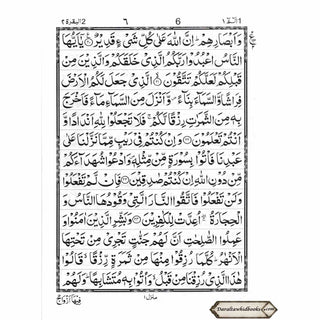 البقرة ٢ ٦ 6 الٓمّٓ ١
وَاَبْصَارِهِمْ ؕ اِنَّ اللّٰهَ عَلٰى كُلِّ شَىْءٍ قَدِيْرٌ ۞ يٰٓاَيُّهَا
النَّاسُ اعْبُدُوْا رَبَّكُمُ الَّذِىْ خَلَقَكُمْ وَالَّذِيْنَ مِنْ
قَبْلِكُمْ لَعَلَّكُمْ تَتَّقُوْنَ ۞ الَّذِىْ جَعَلَ لَكُمُ الْاَرْضَ
فِرَاشًا وَّالسَّمَآءَ بِنَآءً وَّاَنْزَلَ مِنَ السَّمَآءِ مَآءً فَاَخْرَجَ
بِهٖ مِنَ الثَّمَرٰتِ رِزْقًا لَّكُمْ ۚ فَلَا تَجْعَلُوْا لِلّٰهِ اَنْدَادًا وَّ
اَنْتُمْ تَعْلَمُوْنَ ۞ وَاِنْ كُنْتُمْ فِىْ رَيْبٍ مِّمَّا نَزَّلْنَا عَلٰى
عَبْدِنَا فَاْتُوْا بِسُوْرَةٍ مِّنْ مِّثْلِهٖ وَادْعُوْا شُهَدَآءَكُمْ
مِّنْ دُوْنِ اللّٰهِ اِنْ كُنْتُمْ صٰدِقِيْنَ ۞ فَاِنْ لَّمْ تَفْعَلُوْا
وَلَنْ تَفْعَلُوْا فَاتَّقُوا النَّارَ الَّتِىْ وَقُوْدُهَا النَّاسُ وَ
الْحِجَارَةُ ۚ اُعِدَّتْ لِلْكٰفِرِيْنَ ۞ وَبَشِّرِ الَّذِيْنَ اٰمَنُوْا وَ
عَمِلُوا الصّٰلِحٰتِ اَنَّ لَهُمْ جَنّٰتٍ تَجْرِىْ مِنْ تَحْتِهَا
الْاَنْهٰرُ ؕ كُلَّمَا رُزِقُوْا مِنْهَا مِنْ ثَمَرَةٍ رِّزْقًا ۙ قَالُوْا
هٰذَا الَّذِىْ رُزِقْنَا مِنْ قَبْلُ ۙ وَاُتُوْا بِهٖ مُتَشَابِهًا ؕ وَلَهُمْ
منزل ١
فِيْهَآ اَزْوَاجٌ
Darultawhidbooks.com